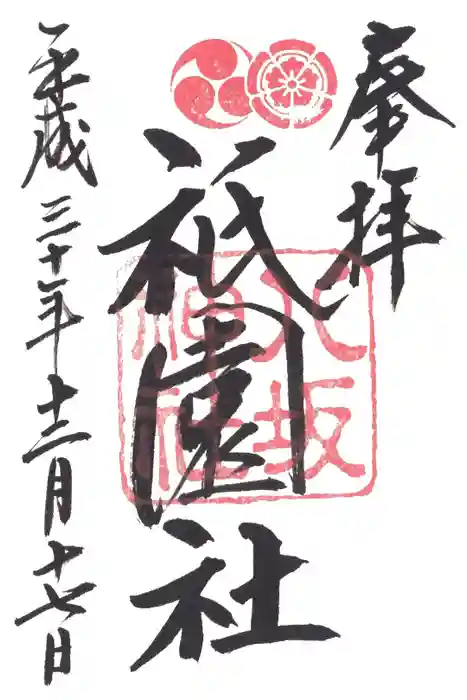 奉拝
祇園社
八坂神社
平成三十年十二月十七日